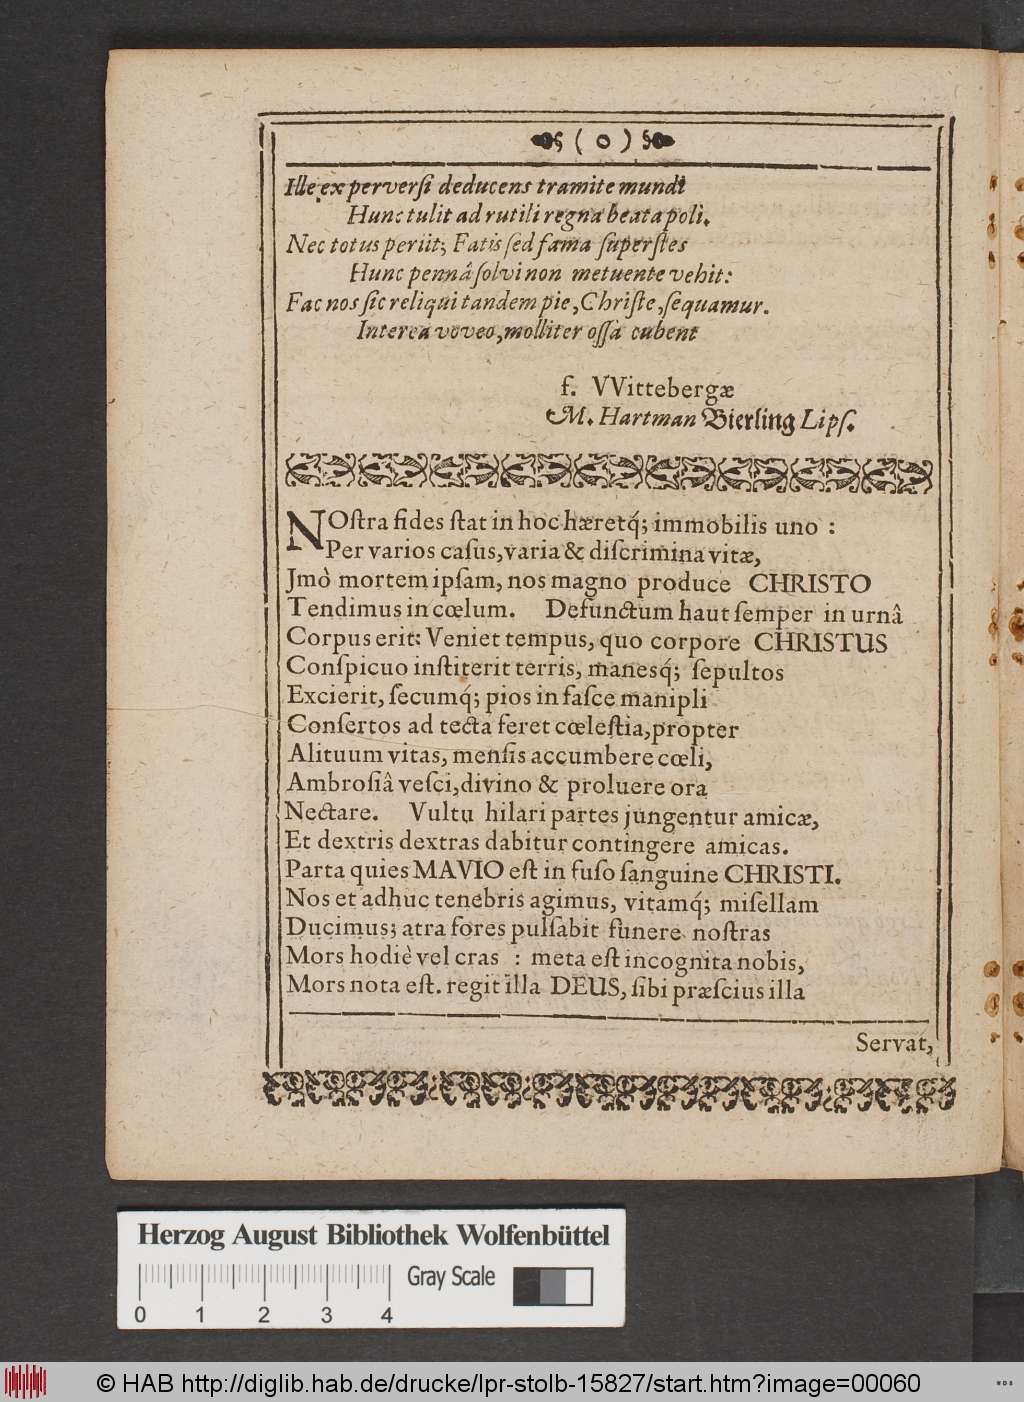 ( o )
Ille ex perversi deducens tramite mundi
Hunc tulit ad rutili regna beata poli.
Nec totus periit; Fatis sed fama superstes
Hunc pennâ solvi non metuente vehit:
Fac nos sic reliqui tandem pie, Christe, sequamur.
Interea voveo, molliter ossa cubent
f. VVittebergæ
M. Hartman Bierling Lips.
NOstra fides stat in hoc hæretq́; immobilis uno :
Per varios casus, varia & discrimina vitæ,
Jmò mortem ipsam, nos magno produce CHRISTO
Tendimus in cœlum. Defunctum haut semper in urnâ
Corpus erit: Veniet tempus, quo corpore CHRISTUS
Conspicuo institerit terris, manesq́; sepultos
Excierit, secumq́; pios in fasce manipli
Consertos ad tecta feret cœlestia, propter
Alituum vitas, mensis accumbere cœli,
Ambrosiâ vesci, divino & proluere ora
Nectare. Vultu hilari partes jungentur amicæ,
Et dextris dextras dabitur contingere amicas.
Parta quies MAVIO est in fuso sanguine CHRISTI.
Nos et adhuc tenebris agimus, vitamq́; misellam
Ducimus; atra fores pulsabit funere nostras
Mors hodiè vel cras : meta est incognita nobis,
Mors nota est. regit illa DEUS, sibi præscius illa
Servat,
Herzog August Bibliothek Wolfenbüttel
Gray Scale
0 1 2 3 4
© HAB http://diglib.hab.de/drucke/lpr-stolb-15827/start.htm?image=00060